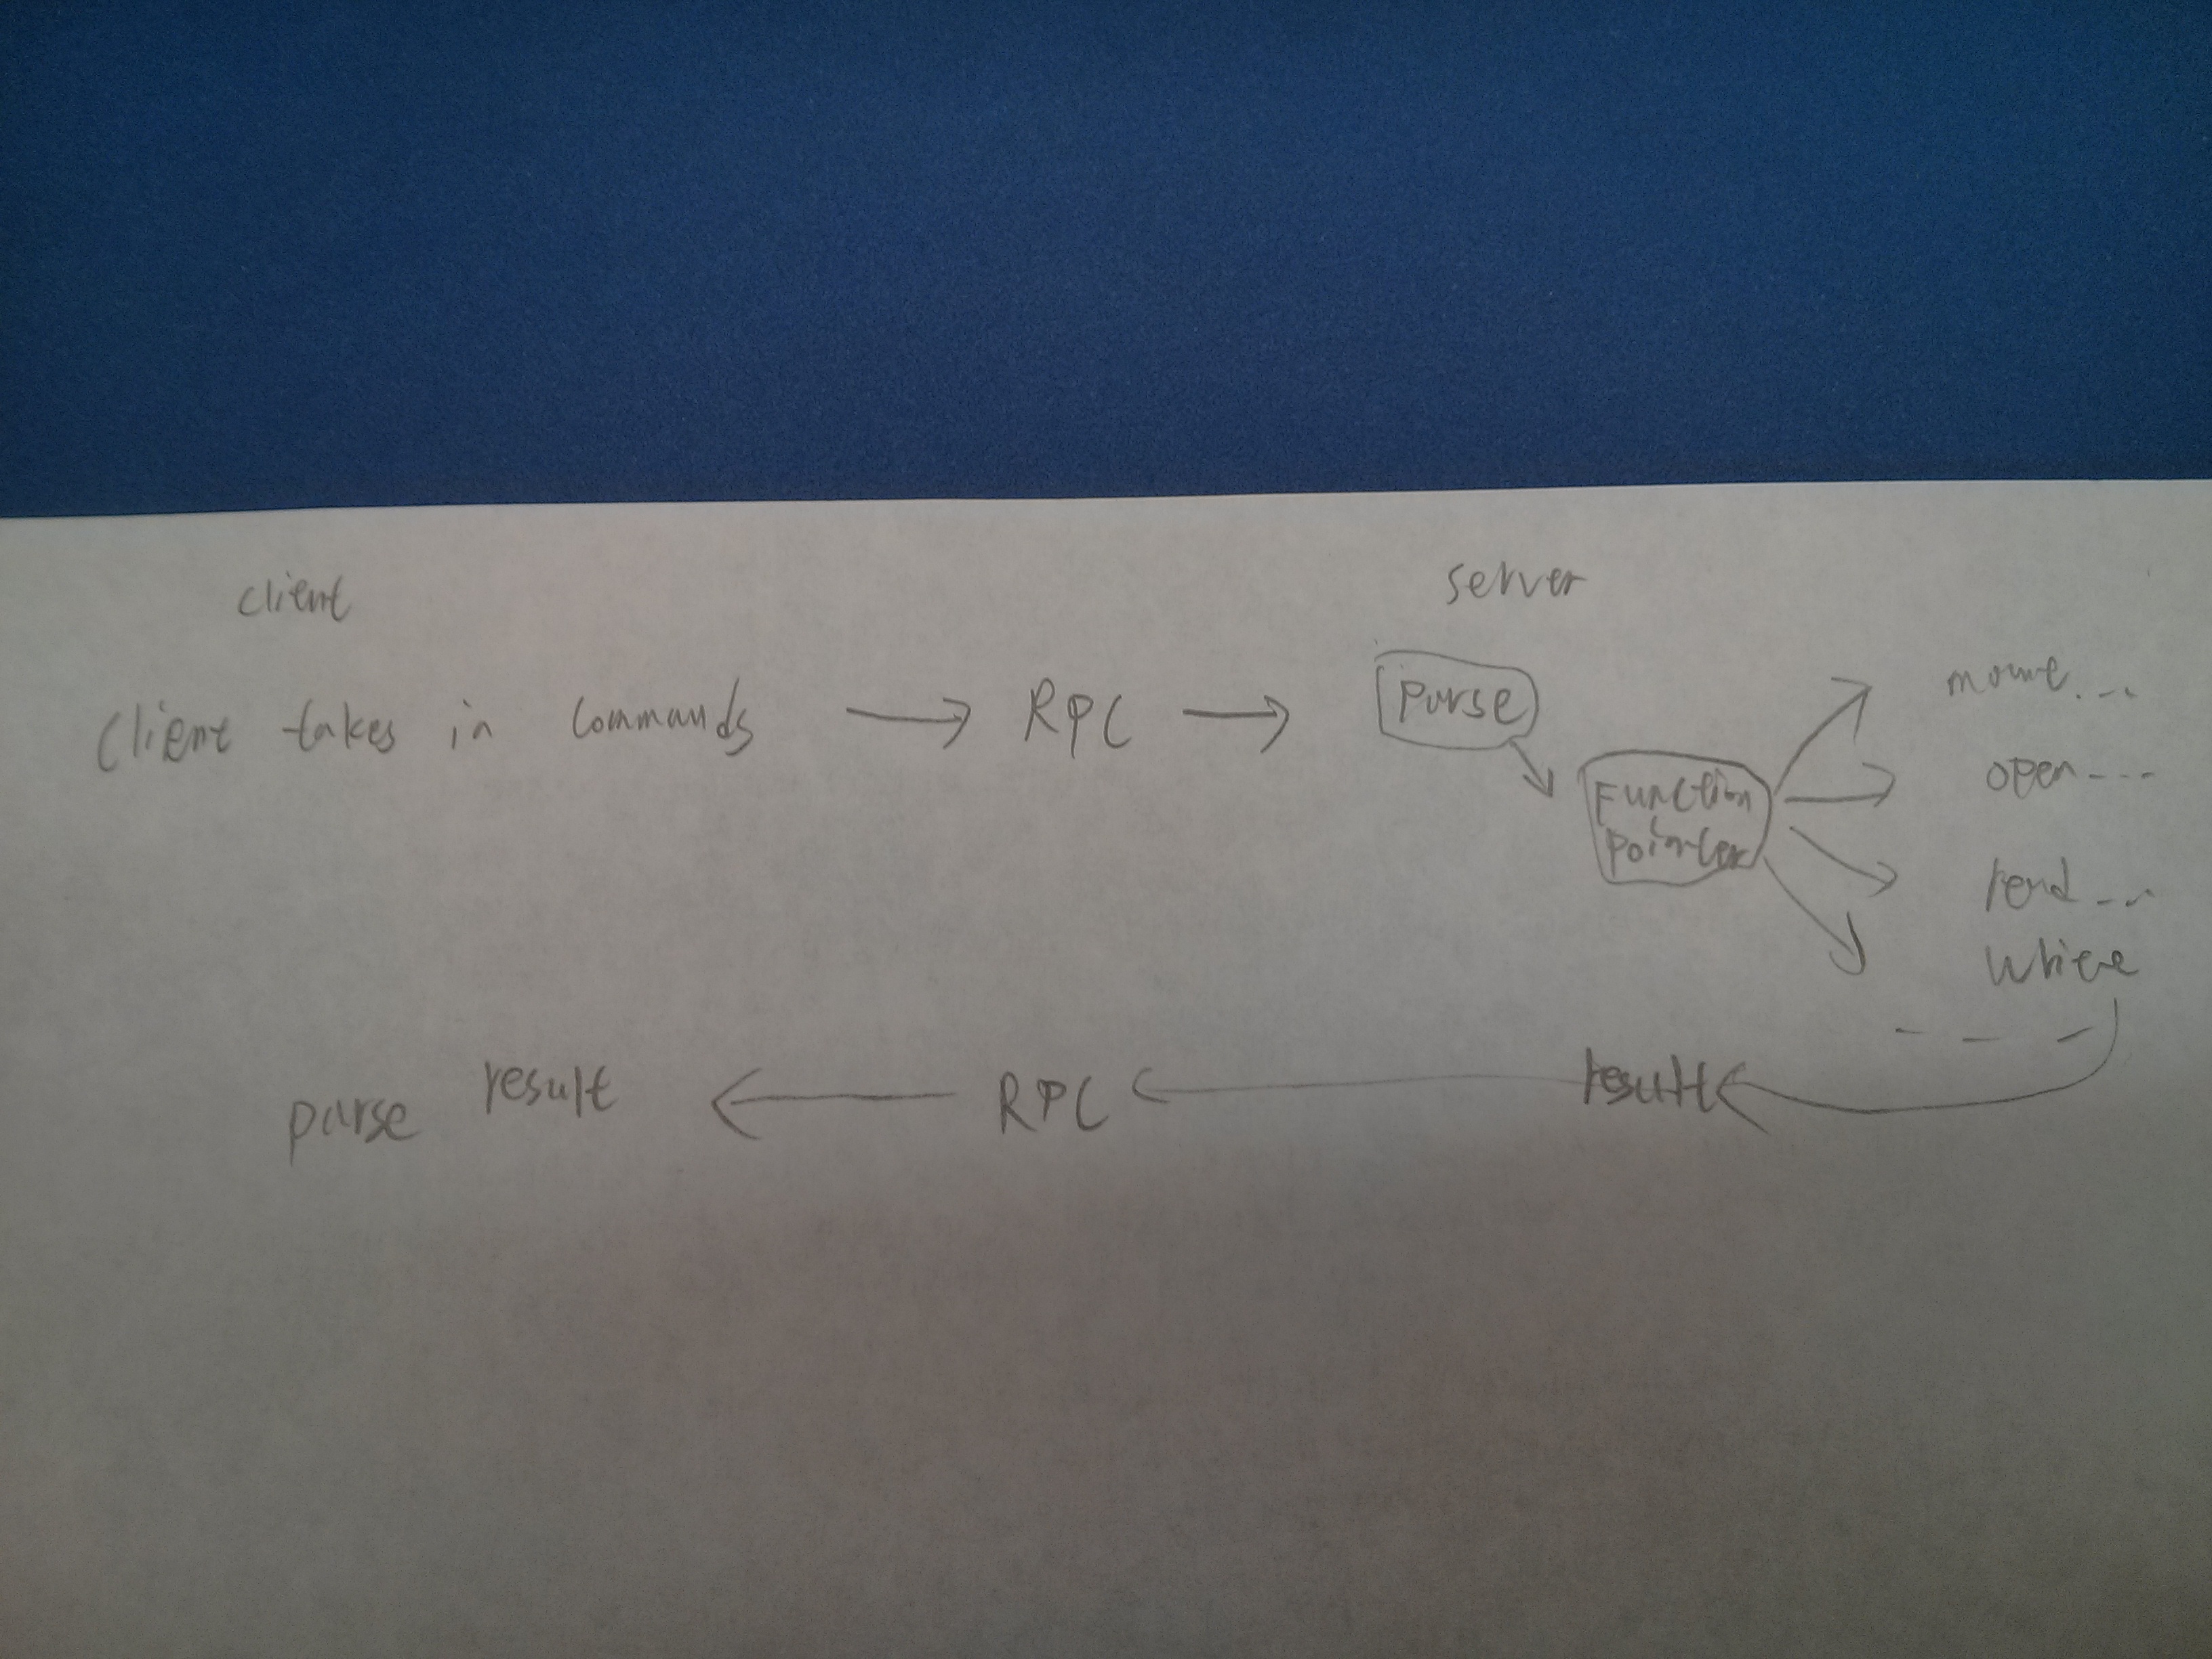 client server
client takes in commands → RPC → Parse
Function
Pointer
mount...
open----
read...
write
- - -
parse result ← RPC ← result